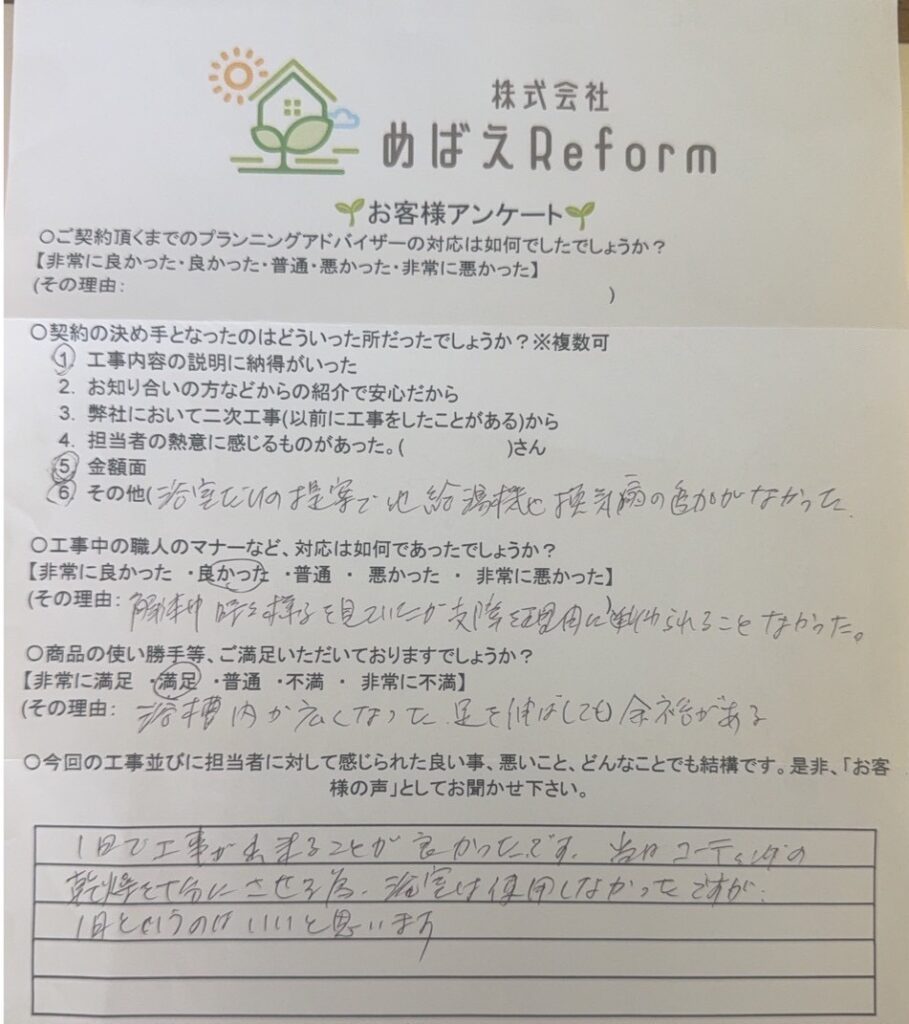 株式会社
めばえReform
お客様アンケート
○ご契約頂くまでのプランニングアドバイザーの対応は如何でしたでしょうか？
【非常に良かった・良かった・普通・悪かった・非常に悪かった】
(その理由: )
○契約の決め手となったのはどういった所だったでしょうか？※複数可
1. 工事内容の説明に納得がいった
2. お知り合いの方などからの紹介で安心だから
3. 弊社において二次工事(以前に工事をしたことがある)から
4. 担当者の熱意に感じるものがあった。( )さん
5. 金額面
6. その他(浴室だけの提案で他給湯機や換気扇の追加がなかった.
○工事中の職人のマナーなど、対応は如何であったでしょうか？
【非常に良かった ・良かった ・普通 ・ 悪かった ・ 非常に悪かった】
(その理由: 時々様子を見ていたが支障を理由に られることなかった。
○商品の使い勝手等、ご満足いただいておりますでしょうか？
【非常に満足 ・満足 ・普通 ・不満 ・ 非常に不満】
(その理由: 浴槽内が広くなった 足を伸ばしても余裕がある
○今回の工事並びに担当者に対して感じられた良い事、悪いこと、どんなことでも結構です。是非、「お客
様の声」としてお聞かせ下さい。
1日で工事が出来ることが良かったです. 当日コーティングの
乾燥を十分にさせる為、浴室は使用しなかったですが.
1日というのはいいと思います